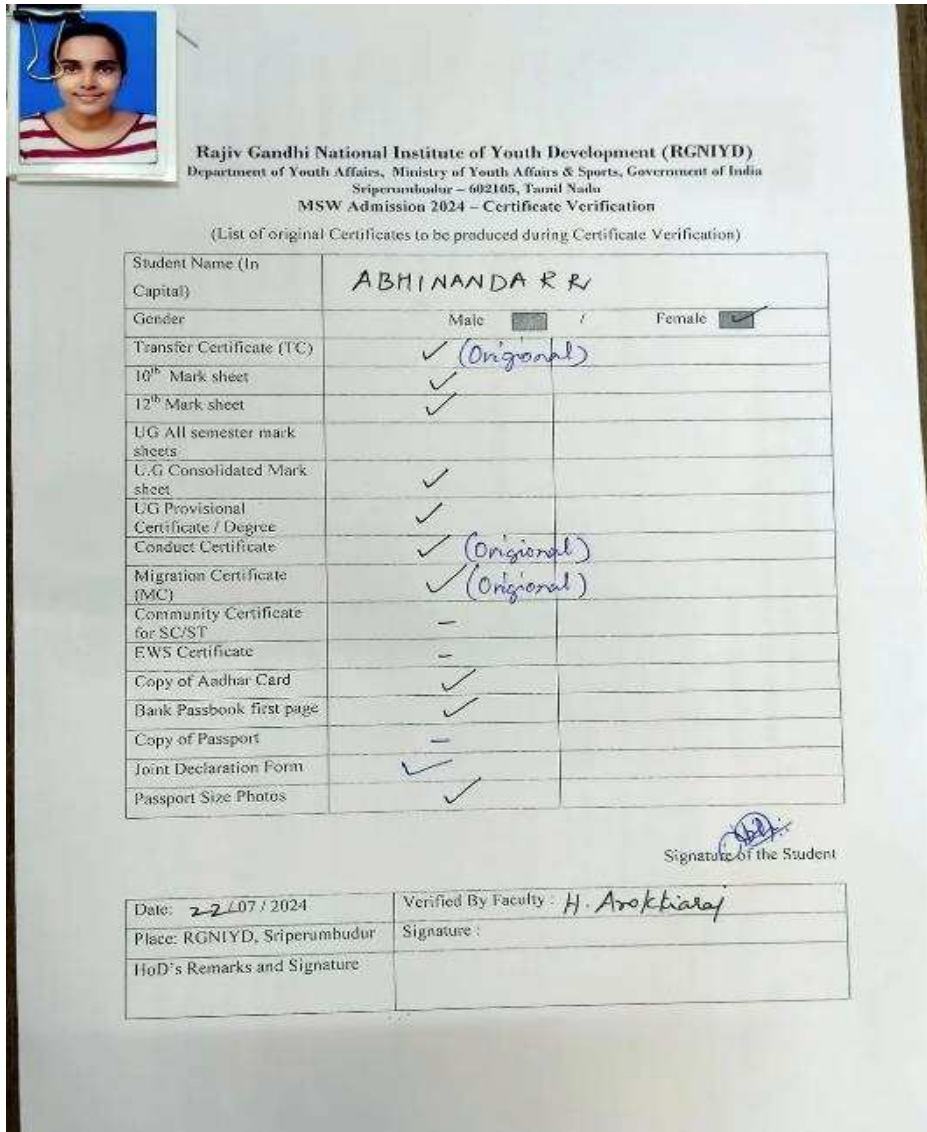 Rajiv Gandhi National Institute of Youth Development (RGNIYD)
Department of Youth Affairs, Ministry of Youth Affairs & Sports, Government of India
Sriperumbudur – 602105, Tamil Nadu
MSW Admission 2024 – Certificate Verification
(List of original Certificates to be produced during Certificate Verification)
Student Name (In
Capital)
ABHINANDA R R
Gender Male / Female ✓
Transfer Certificate (TC) ✓ (Origional)
10th Mark sheet ✓
12th Mark sheet ✓
UG All semester mark
sheets
U.G Consolidated Mark
sheet ✓
UG Provisional
Certificate / Degree ✓
Conduct Certificate ✓ (Origional)
Migration Certificate
(MC) ✓ (Origional)
Community Certificate
for SC/ST –
EWS Certificate –
Copy of Aadhar Card ✓
Bank Passbook first page ✓
Copy of Passport –
Joint Declaration Form ✓
Passport Size Photos ✓
Signature of the Student
Date: 22/07/2024 Verified By Faculty : H. Arokkiaraj
Place: RGNIYD, Sriperumbudur Signature :
HoD's Remarks and Signature